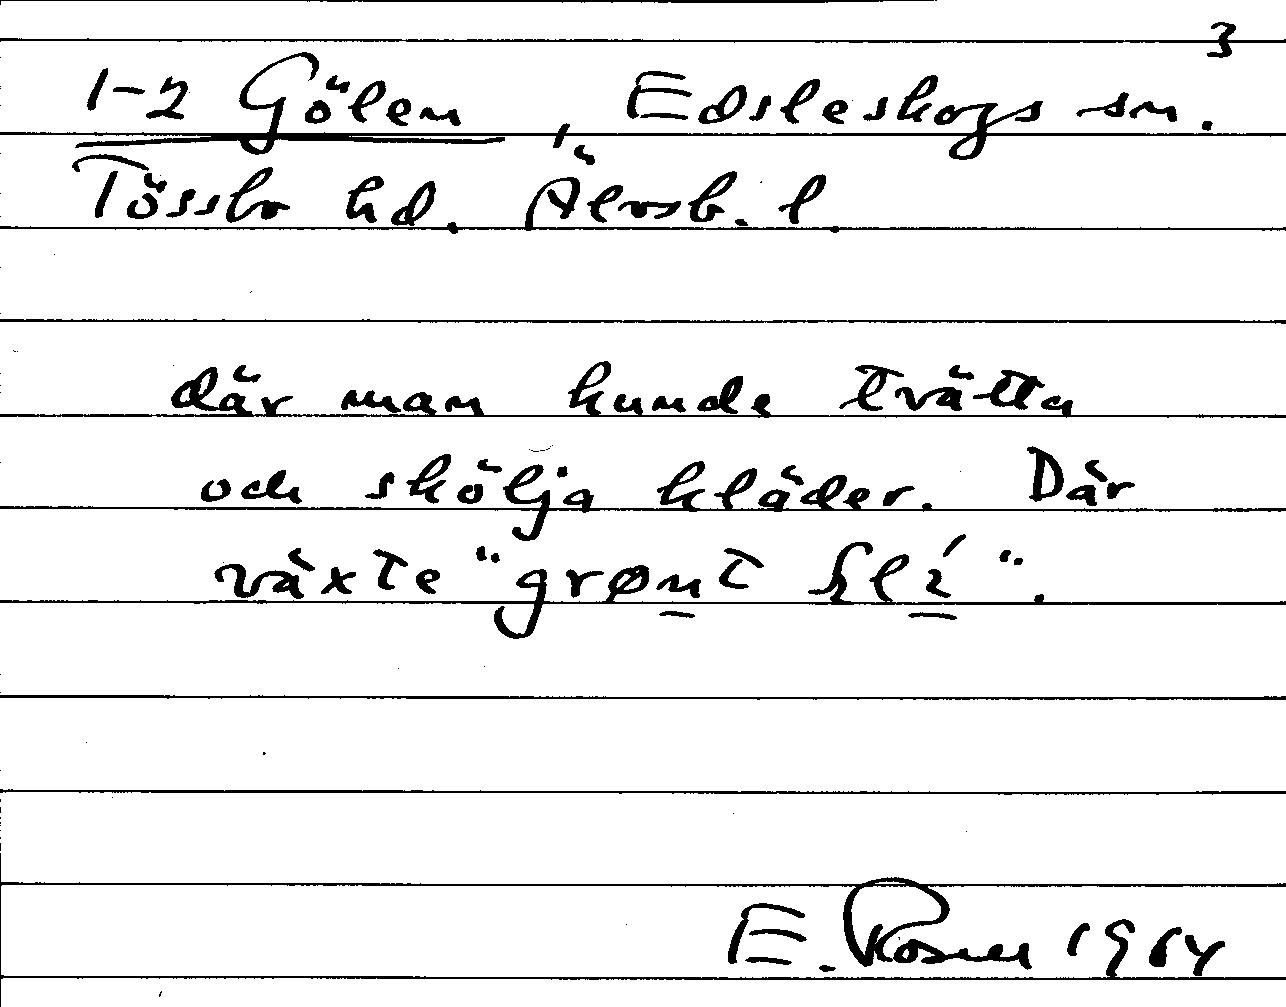 3
1-2 Gölen, Edsleskogs sn.
Tössbo hd. Älvsb. l.
där man kunde tvätta
och skölja kläder. Där
växte "grønt slí".
E. Rosell 1964